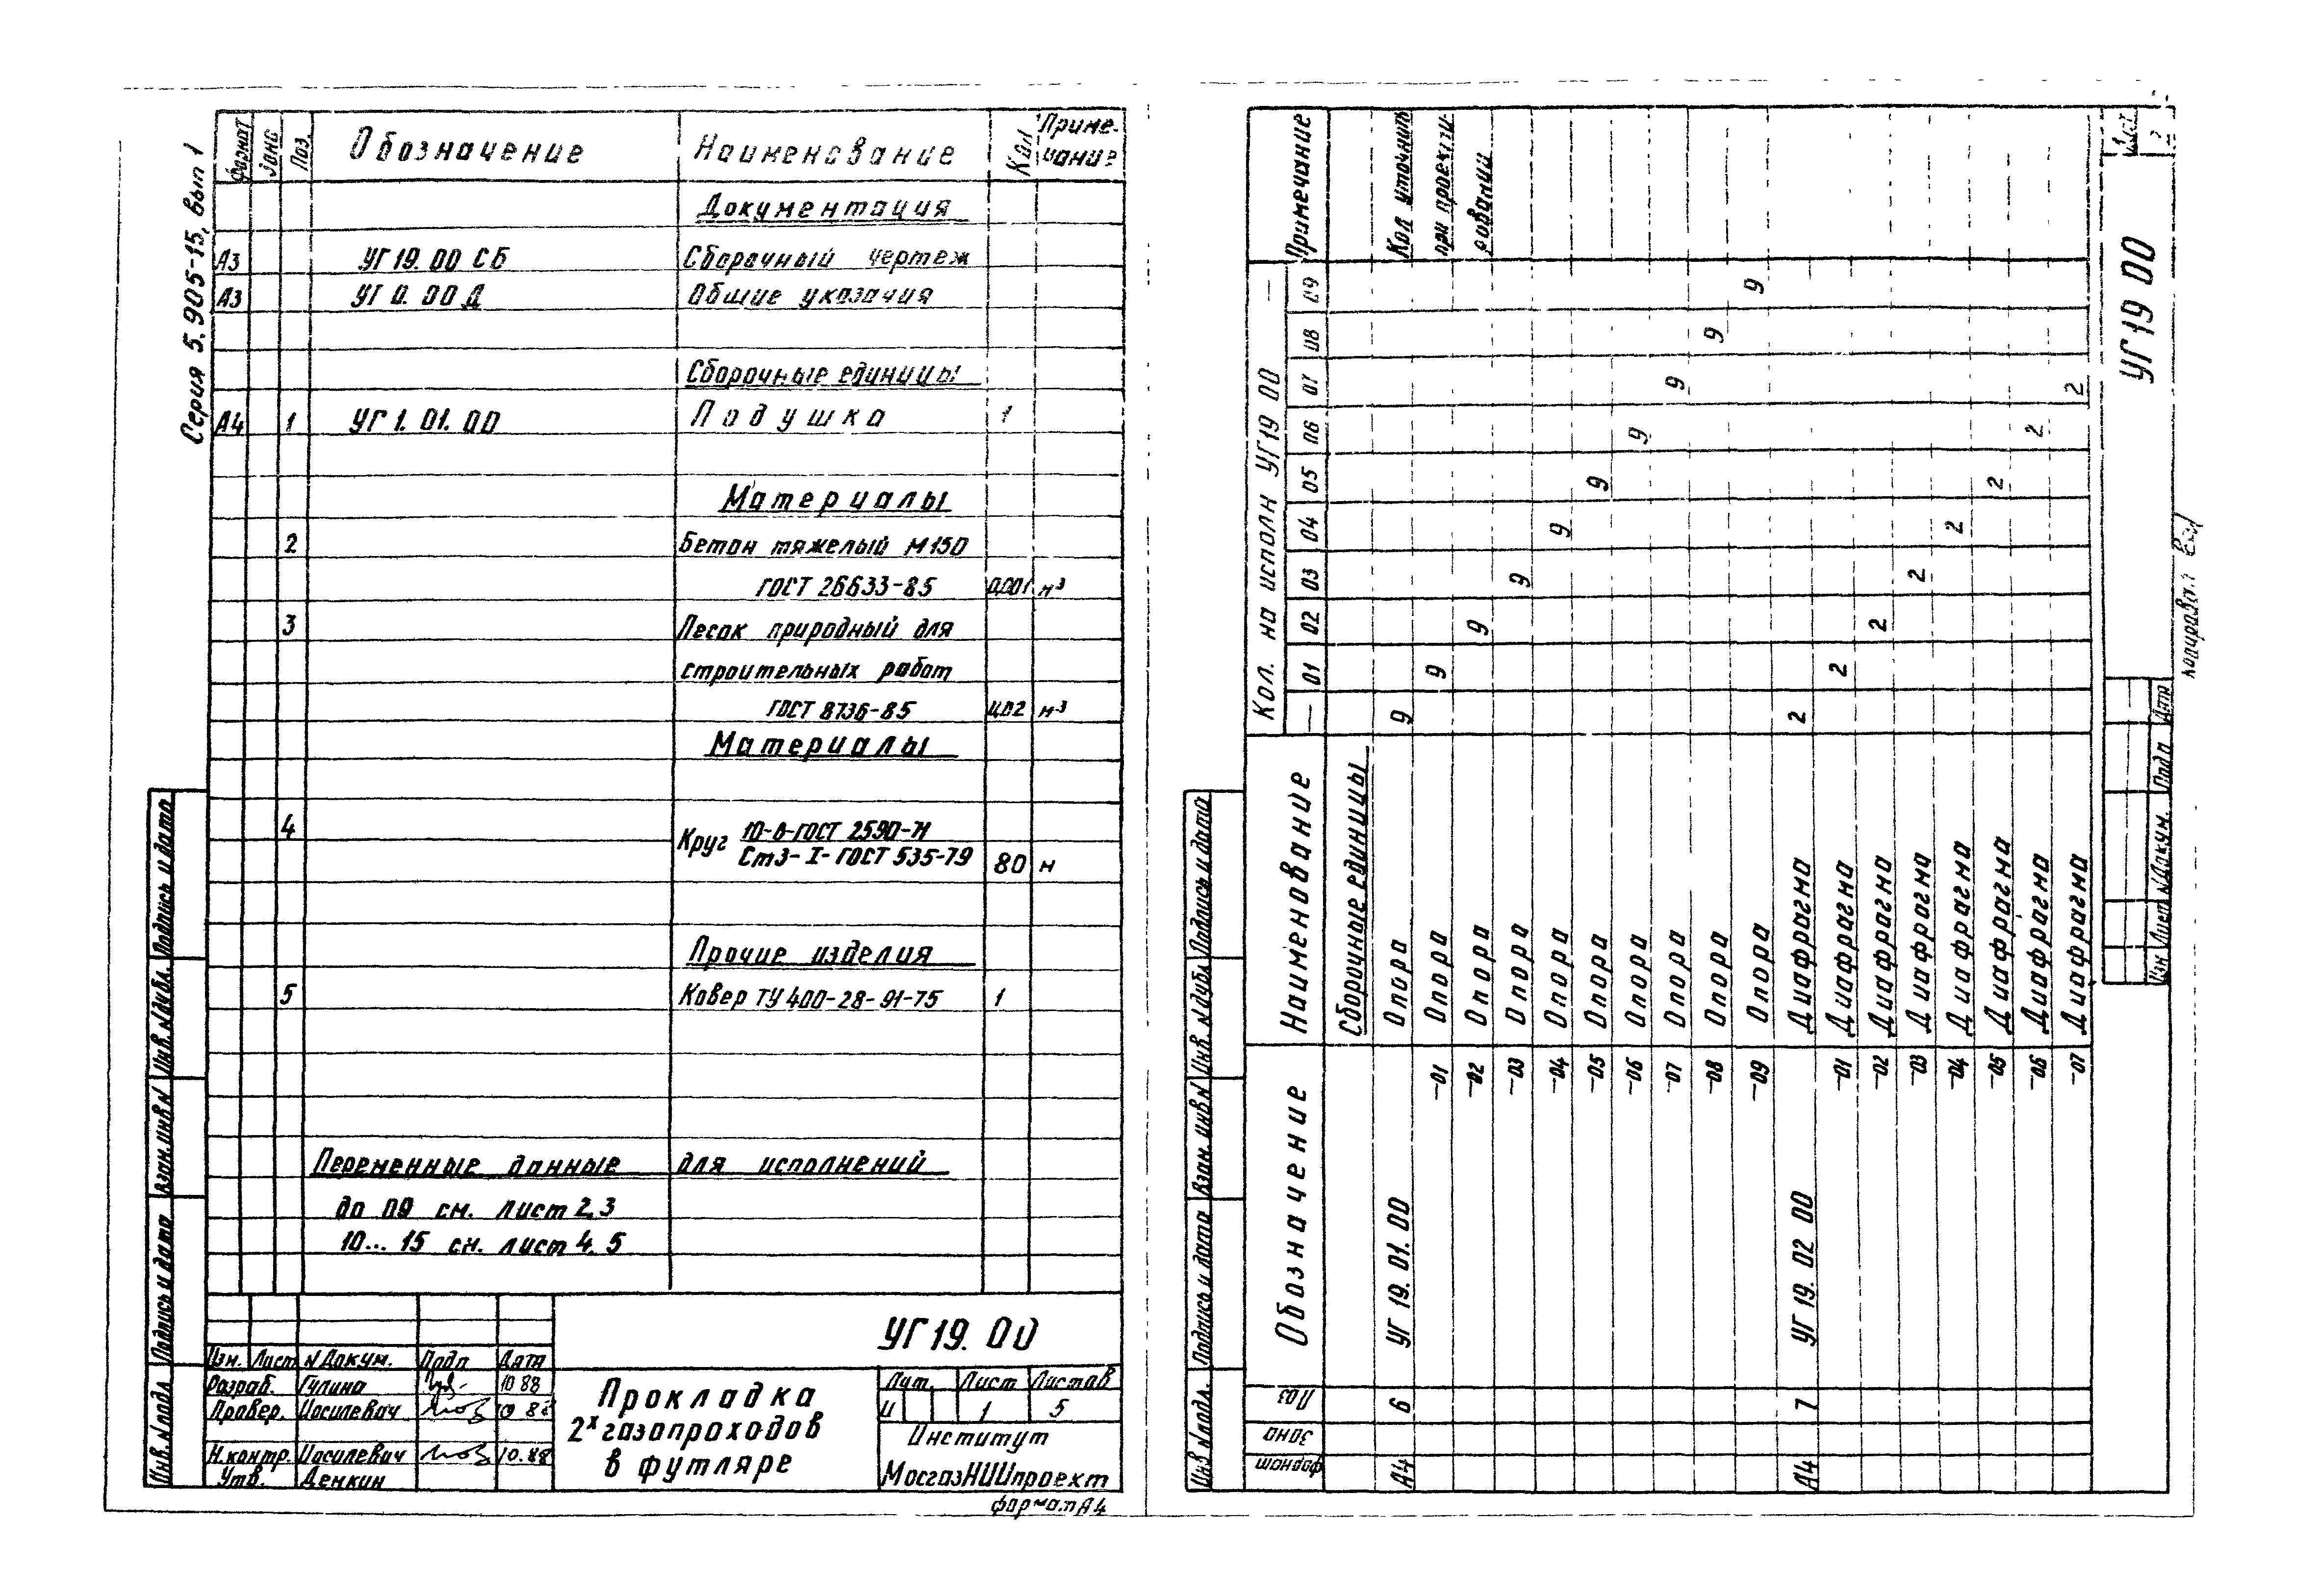 Серия 5.905-15, вып 1
Формат Зона Поз. Обозначение Наименование Кол Примечание
Документация
А3 УГ19.00 СБ Сборочный чертеж
А3 УГ 0.00 Д Общие указания
Сборочные единицы
А4 1 УГ 1.01.00 Подушка 1
Материалы
2 Бетон тяжелый М150
ГОСТ 26633-85 0,001 м³
3 Песок природный для
строительных работ
ГОСТ 8736-85 0,02 м³
Материалы
4 Круг 10-В-ГОСТ 2590-71
Ст3-I-ГОСТ 535-79 80 м
Прочие изделия
5 Ковер ТУ 400-28-91-75 1
Переменные данные для исполнений
до 09 см. лист 2,3
10... 15 см. лист 4.5
УГ19.00
Изм. Лист N Докум. Подп Дата
Разраб. Гулина 10 88
Провер. Иосилевич 10 88
Н.контр. Иосилевич 10.88
Утв. Денкин
Прокладка
2х газопроходов
в футляре
Лит. Лист Листов
И 1 5
Институт
МосгазНИИпроект
формат А4
Инв. N подл. Подпись и дата Взам. инв N Инв. N дубл. Подпись и дата
Формат Зона Поз Обозначение Наименование Кол. на исполн УГ19 00 — Примечание
— 01 02 03 04 05 06 07 08 09
Сборочные единицы
А4 6 УГ 19.01.00 Опора 9 Кол уточнить
-01 Опора 9 при проекти-
-02 Опора 9 ровании
-03 Опора 9
-04 Опора 9
-05 Опора 9
-06 Опора 9
-07 Опора 9
-08 Опора 9
-09 Опора 9
А4 7 УГ 19. 02 00 Диафрагма 2
-01 Диафрагма 2
-02 Диафрагма 2
-03 Диафрагма 2
-04 Диафрагма 2
-05 Диафрагма 2
-06 Диафрагма 2
-07 Диафрагма 2
Изм Лист N Докум. Подп Дата
УГ19 00
Лист
2
Копировал
Инв N подл. Подпись и дата Взам. инв N Инв. N дубл Подпись и дата